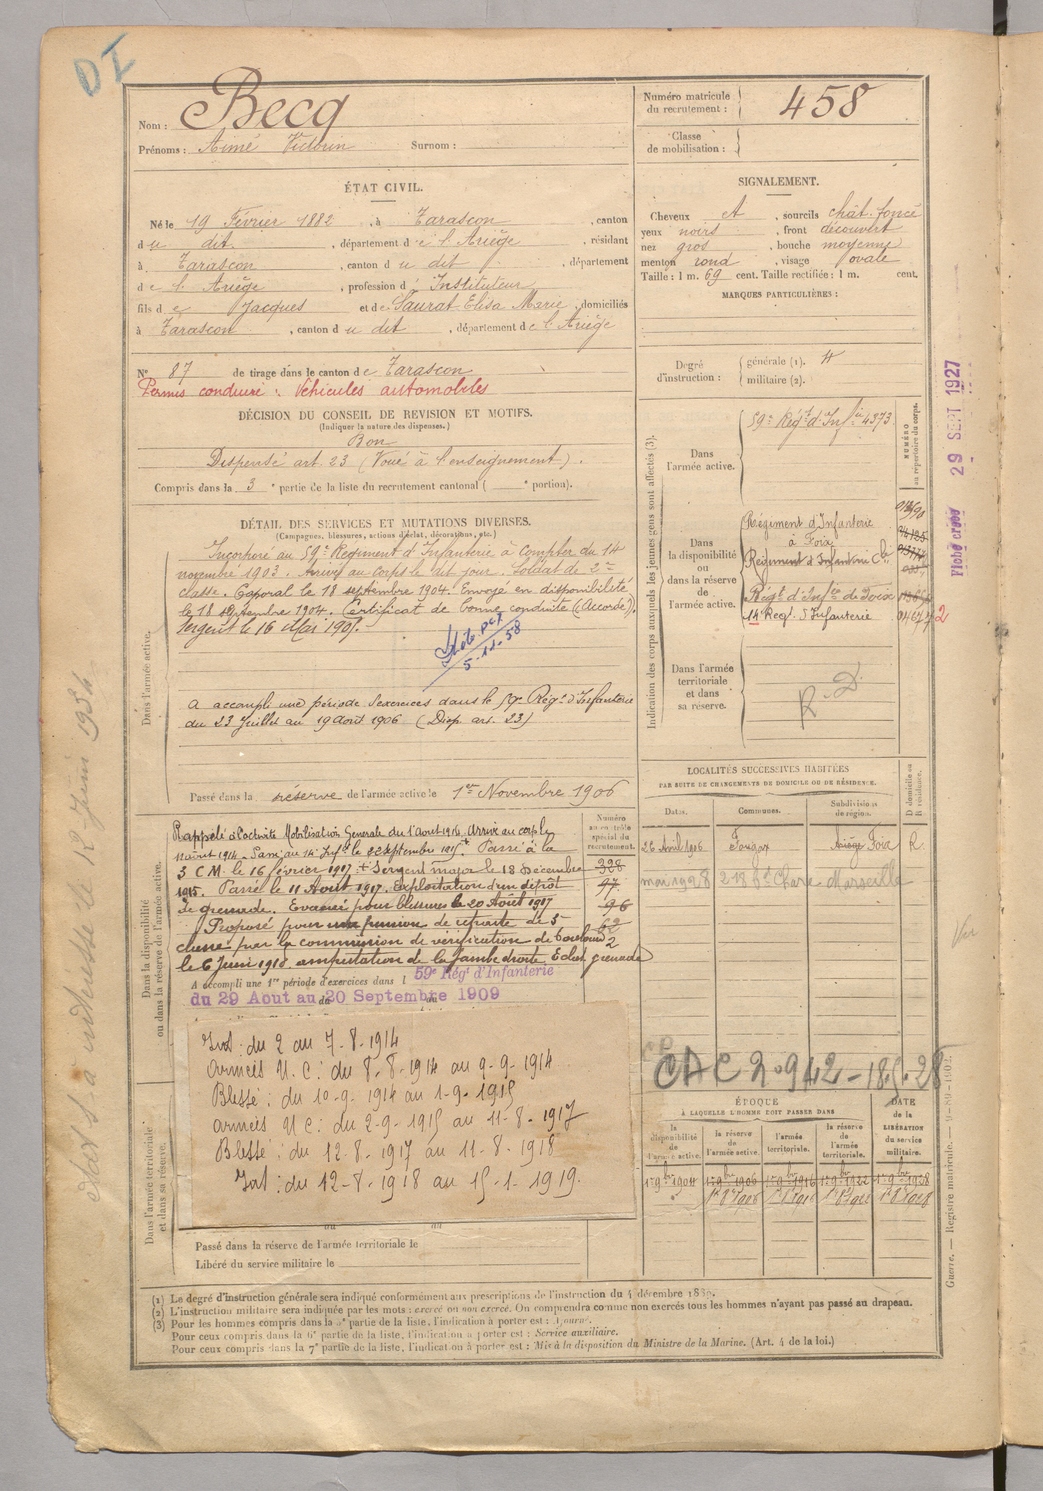 DI
Nom : Becq
Prénoms : Aimé Victorin Surnom :
Numéro matricule du recrutement : 458
Classe de mobilisation :
ÉTAT CIVIL.
Né le 19 Février 1882, à Tarascon, canton
du dit, département de l'Ariège, résidant
à Tarascon, canton du dit, département
de l'Ariège, profession d'Instituteur
fils de Jacques et de Saurat Elisa Marie, domiciliés
à Tarascon, canton du dit, département de l'Ariège
N° 87 de tirage dans le canton de Tarascon
Permis conduire : Véhicules automobiles
DÉCISION DU CONSEIL DE REVISION ET MOTIFS.
(Indiquer la nature des dispenses.)
Bon
Dispensé art. 23 (Voué à l'enseignement).
Compris dans la 3e partie de la liste du recrutement cantonal ( e portion).
SIGNALEMENT.
Cheveux et, sourcils chât. foncé
yeux noirs, front découvert
nez gros, bouche moyenne
menton rond, visage ovale
Taille : 1 m. 69 cent. Taille rectifiée : 1 m. cent.
MARQUES PARTICULIÈRES :
Degré d'instruction : générale (1).
militaire (2).
DÉTAIL DES SERVICES ET MUTATIONS DIVERSES.
(Campagnes, blessures, actions d'éclat, décorations, etc.)
Dans l'armée active.
Incorporé au 59e Régiment d'Infanterie à compter du 14
novembre 1903. Arrivé au corps le dit jour. Soldat de 2me
classe. Caporal le 18 septembre 1904. Envoyé en disponibilité
le 18 septembre 1904. Certificat de bonne conduite (Accordé).
Sergent le 16 Mai 1905.
5-11-58
a accompli une période d'exercices dans le 59e Régt d'Infanterie
du 23 Juillet au 19 août 1906 (Disp. art. 23)
Passé dans la réserve de l'armée active le 1er Novembre 1906
Indication des corps auxquels les jeunes gens sont affectés (3).
NUMÉRO au répertoire du corps.
Dans l'armée active.
59e Régt d'Infie 4373
Dans la disponibilité ou dans la réserve de l'armée active.
Régiment d'Infanterie
à Foix
Régiment d'Infanterie
Régt d'Infie de Foix
14 Régt d'Infanterie
Dans l'armée territoriale et dans sa réserve.
R. D.
Fiche créée 29 SEPT 1927
Dans la disponibilité ou dans la réserve de l'armée active.
Numéro au contrôle spécial du recrutement.
Rappelé à l'activité Mobilisation Générale du 1 Aout 1914. Arrivé au corps le
11 août 1914. Passé au 14e Infie le 22 septembre 1915. Passé à la
3 C M. le 16 février 1917. + Sergent major le 18 Décembre
1915. Passé le 11 Août 1917. Exploitation d'un dépôt
de grenade. Evacué pour blessures le 20 Août 1917
Proposé pour une pension de retraite de 5e
classe par la commission de vérification de Toulouse
le 6 Juin 1918. amputation de la jambe droite Eclat grenade
328
97
96
62
2
A accompli une 1re période d'exercices dans l 59e Régt d'Infanterie
du 29 Aout au 20 Septembre 1909
Int : du 2 au 7-8-1914
Armées U.C : du 8-8-1914 au 9-9-1914
Blessé : du 10-9-1914 au 1-9-1915
Armées U C : du 2-9-1915 au 11-8-1917
Blessé : du 12-8-1917 au 11-8-1918
Int : du 12-8-1918 au 15-1-1919.
Dans l'armée territoriale et dans sa réserve.
Passé dans la réserve de l'armée territoriale le
Libéré du service militaire le
LOCALITÉS SUCCESSIVES HABITÉES
PAR SUITE DE CHANGEMENTS DE DOMICILE OU DE RÉSIDENCE.
Dates. Communes. Subdivisions de région. D domicile ou R résidence.
26 Avril 1906 Fougax Ariège Foix R
mai 1928 Marseille
CAC 2.942-18.5.28
ÉPOQUE
À LAQUELLE L'HOMME DOIT PASSER DANS
DATE de la LIBÉRATION du service militaire.
la disponibilité de l'armée active. la réserve de l'armée active. l'armée territoriale. la réserve de l'armée territoriale.
1er 9bre 1904 1er 9bre 1906 1er 9bre 1916 1er 9bre 1922 1er 9bre 1928
(1) Le degré d'instruction générale sera indiqué conformément aux prescriptions de l'instruction du 4 décembre 1889.
(2) L'instruction militaire sera indiquée par les mots : exercé ou non exercé. On comprendra comme non exercés tous les hommes n'ayant pas passé au drapeau.
(3) Pour les hommes compris dans la 5e partie de la liste, l'indication à porter est : Ajourné.
Pour ceux compris dans la 6e partie de la liste, l'indication à porter est : Service auxiliaire.
Pour ceux compris dans la 7e partie de la liste, l'indication à porter est : Mis à la disposition du Ministre de la Marine. (Art. 4 de la loi.)
Guerre. — Registre matricule.
12 Juin 1934